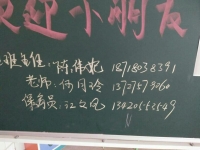 欢迎小朋友
班主任:陈伟妃 18718038391
老师:何月玲 13727579060
保育员:江文凤 13420552549